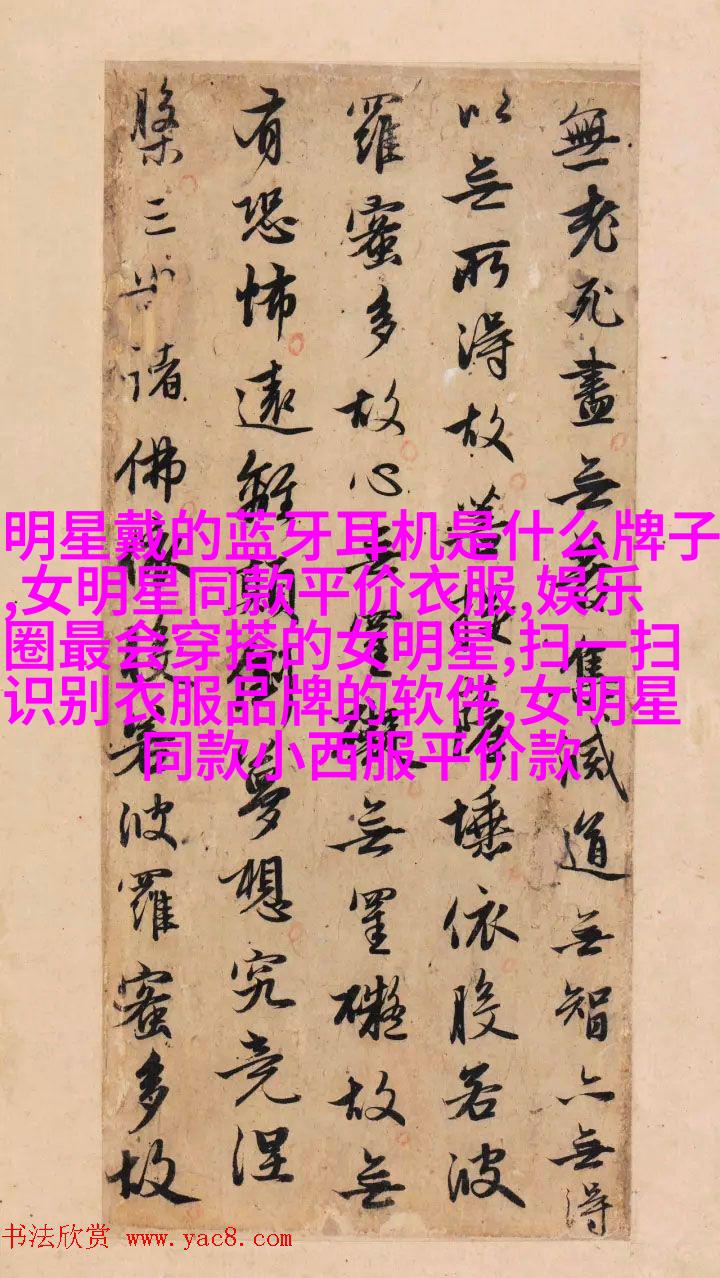 無老死盡无苦集滅道无智亦无得
以无所得故菩提薩埵依般若波
羅蜜多故心无罣礙无罣礙故无
有恐怖遠離顛倒夢想究竟涅
槃三世諸佛依般若波羅蜜多故
明星戴的蓝牙耳机是什么牌子
,女明星同款平价衣服,娱乐
圈最会穿搭的女明星,扫一扫
识别衣服品牌的软件,女明星
同款小西服平价款
书法欣赏 www.yac8.com